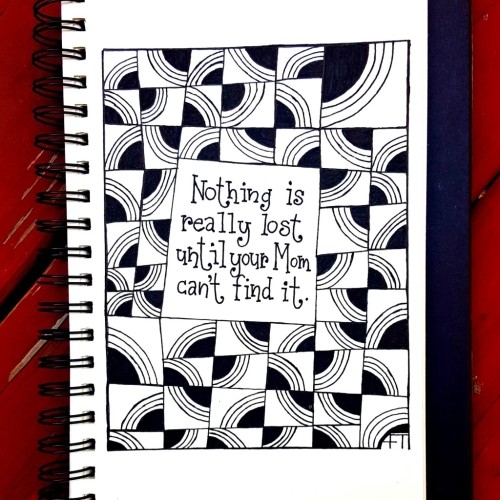 Nothing is
really lost
until your Mom
can't find it.
FT